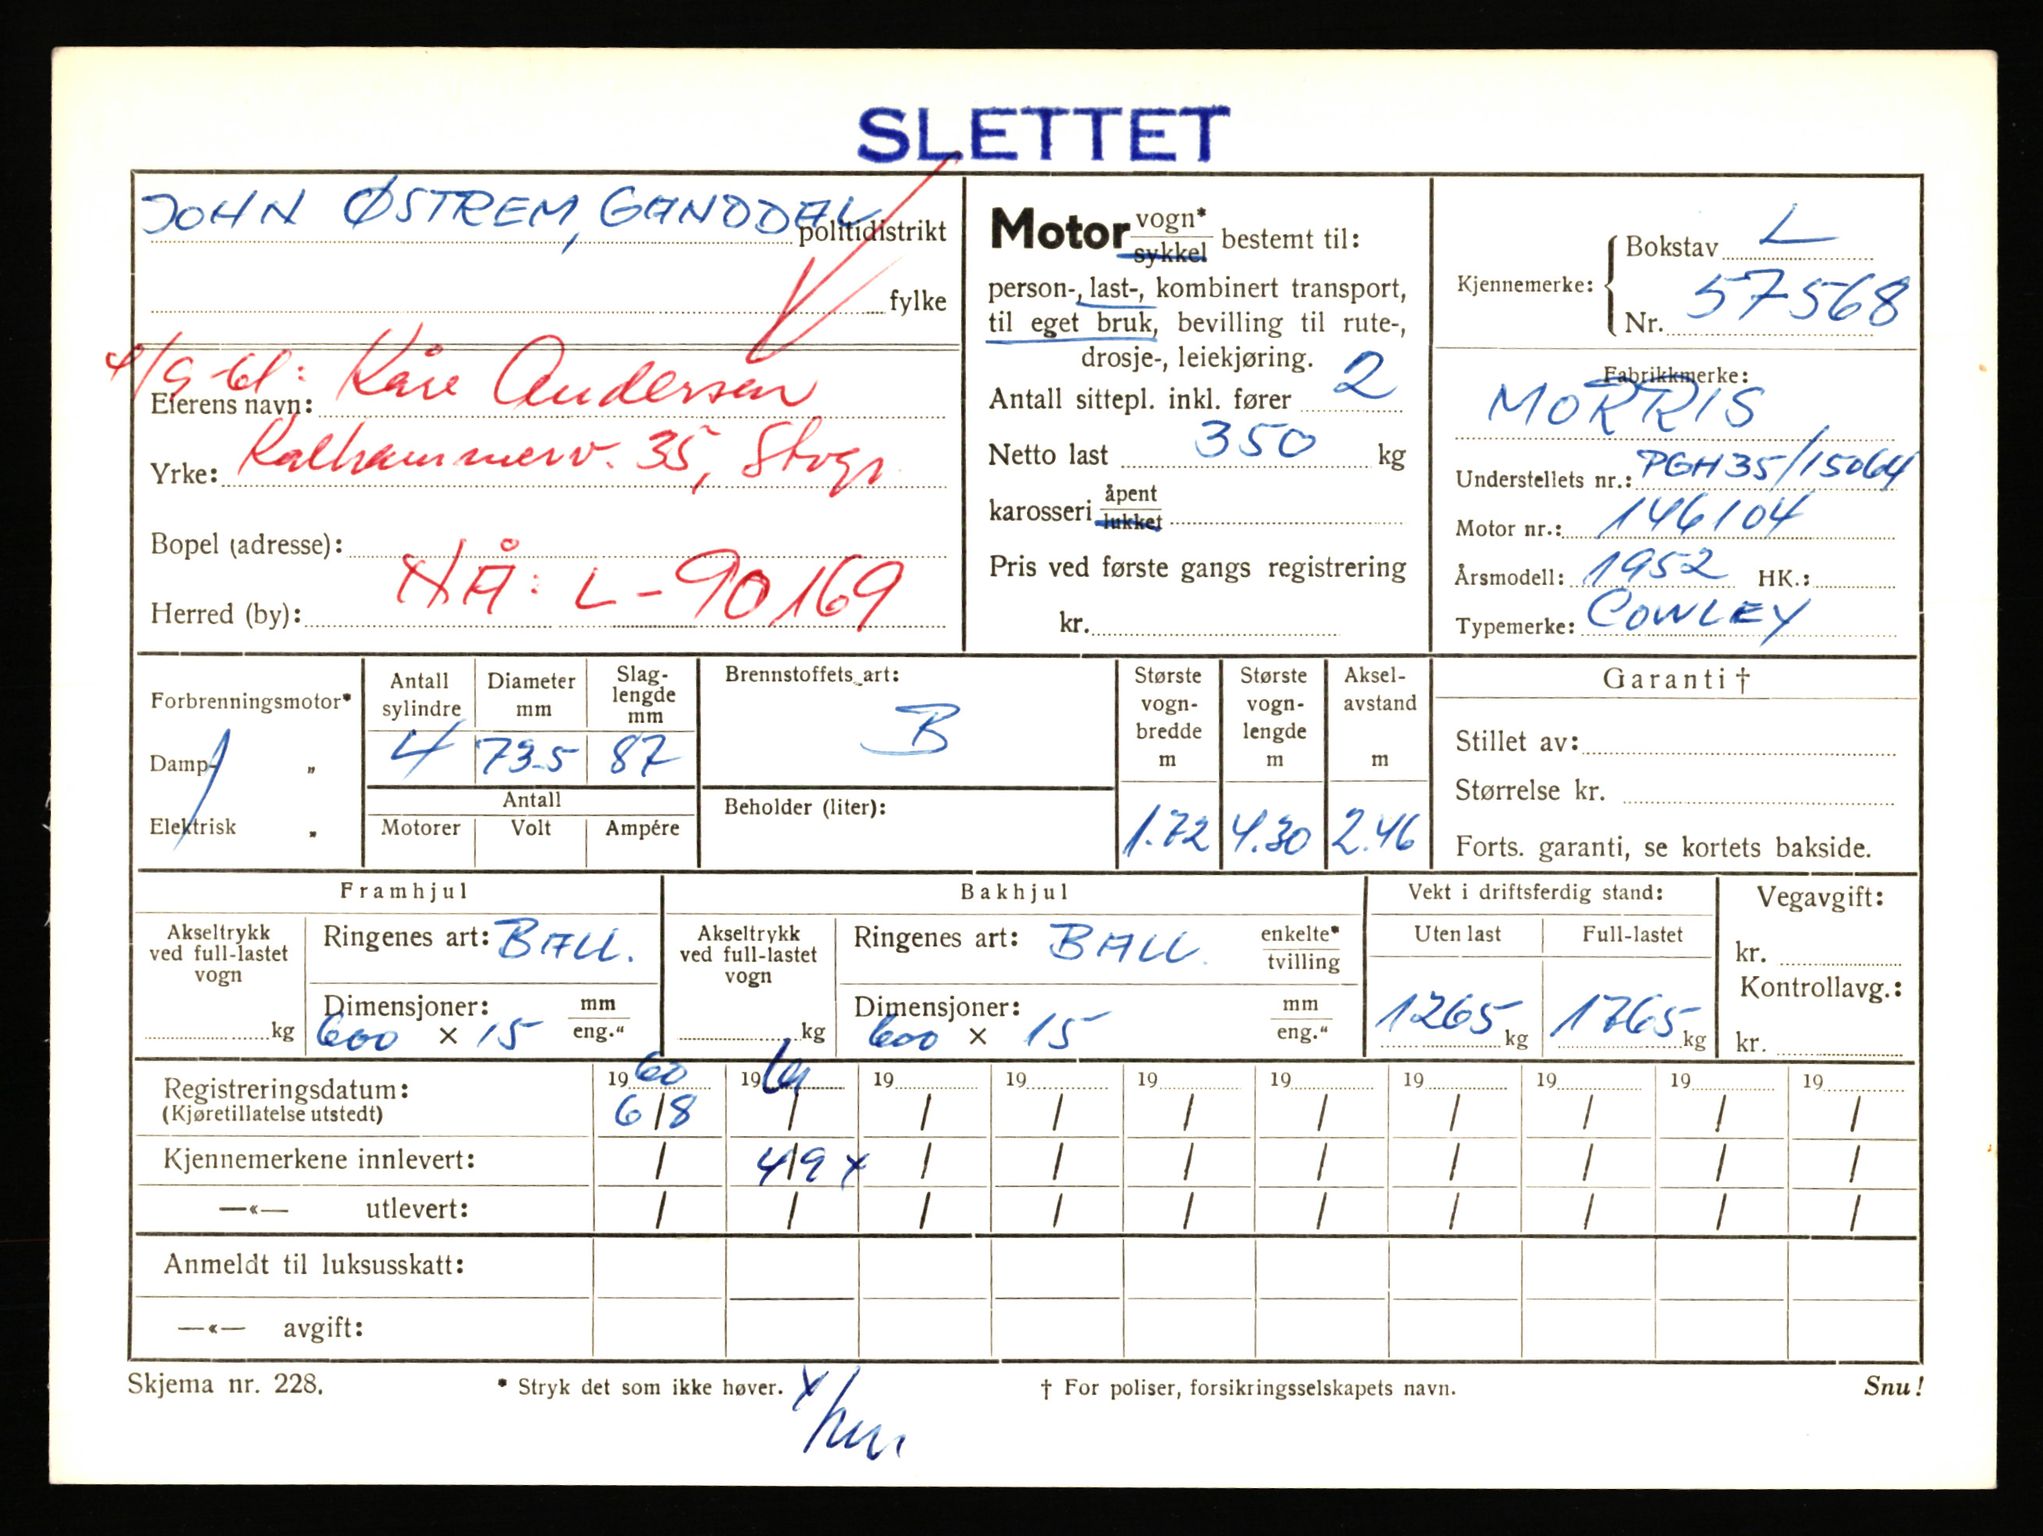 SLETTET
JOHN ØSTREM, GANDDAL politidistrikt
fylke
4/9-61: Kåre Andersen
Eierens navn:
Kalhammerv. 35, Stvgr
Yrke:
Bopel (adresse):
NÅ: L-90169
Herred (by):
Motor vogn* sykkel bestemt til:
person-, last-, kombinert transport,
til eget bruk, bevilling til rute-,
drosje-, leiekjøring.
Antall sittepl. inkl. fører 2
Netto last 350 kg
karosseri åpent lukket
Pris ved første gangs registrering
kr.
Kjennemerke: Bokstav L
Nr. 57568
Fabrikkmerke:
MORRIS
Understellets nr.: PGH35/15064
Motor nr.: 146104
Årsmodell: 1952 HK.:
Typemerke: COWLEY
Forbrenningsmotor*
Damp- „
Elektrisk „
Antall sylindre 4
Diameter mm 73.5
Slag-lengde mm 87
Antall
Motorer Volt Ampére
Brennstoffets art:
B
Beholder (liter):
Største vogn-bredde m 1.72
Største vogn-lengde m 4.30
Aksel-avstand m 2.46
Garanti †
Stillet av:
Størrelse kr.
Forts. garanti, se kortets bakside.
Framhjul
Akseltrykk ved full-lastet vogn
kg
Ringenes art: BALL.
Dimensjoner: mm
600 × 15 eng.“
Bakhjul
Akseltrykk ved full-lastet vogn
kg
Ringenes art: BALL. enkelte* tvilling
Dimensjoner: mm
600 × 15 eng.“
Vekt i driftsferdig stand:
Uten last Full-lastet
1265 kg 1765 kg
Vegavgift:
kr.
Kontrollavg.:
kr.
Registreringsdatum: 1960 1961 19 19 19 19 19 19 19 19
(Kjøretillatelse utstedt) 6/8 / / / / / / / / /
Kjennemerkene innlevert: / 4/9 x / / / / / / / /
—«— utlevert: / / / / / / / / / /
Anmeldt til luksusskatt:
—«— avgift:
Skjema nr. 228.
* Stryk det som ikke høver.
† For poliser, forsikringsselskapets navn.
Snu!